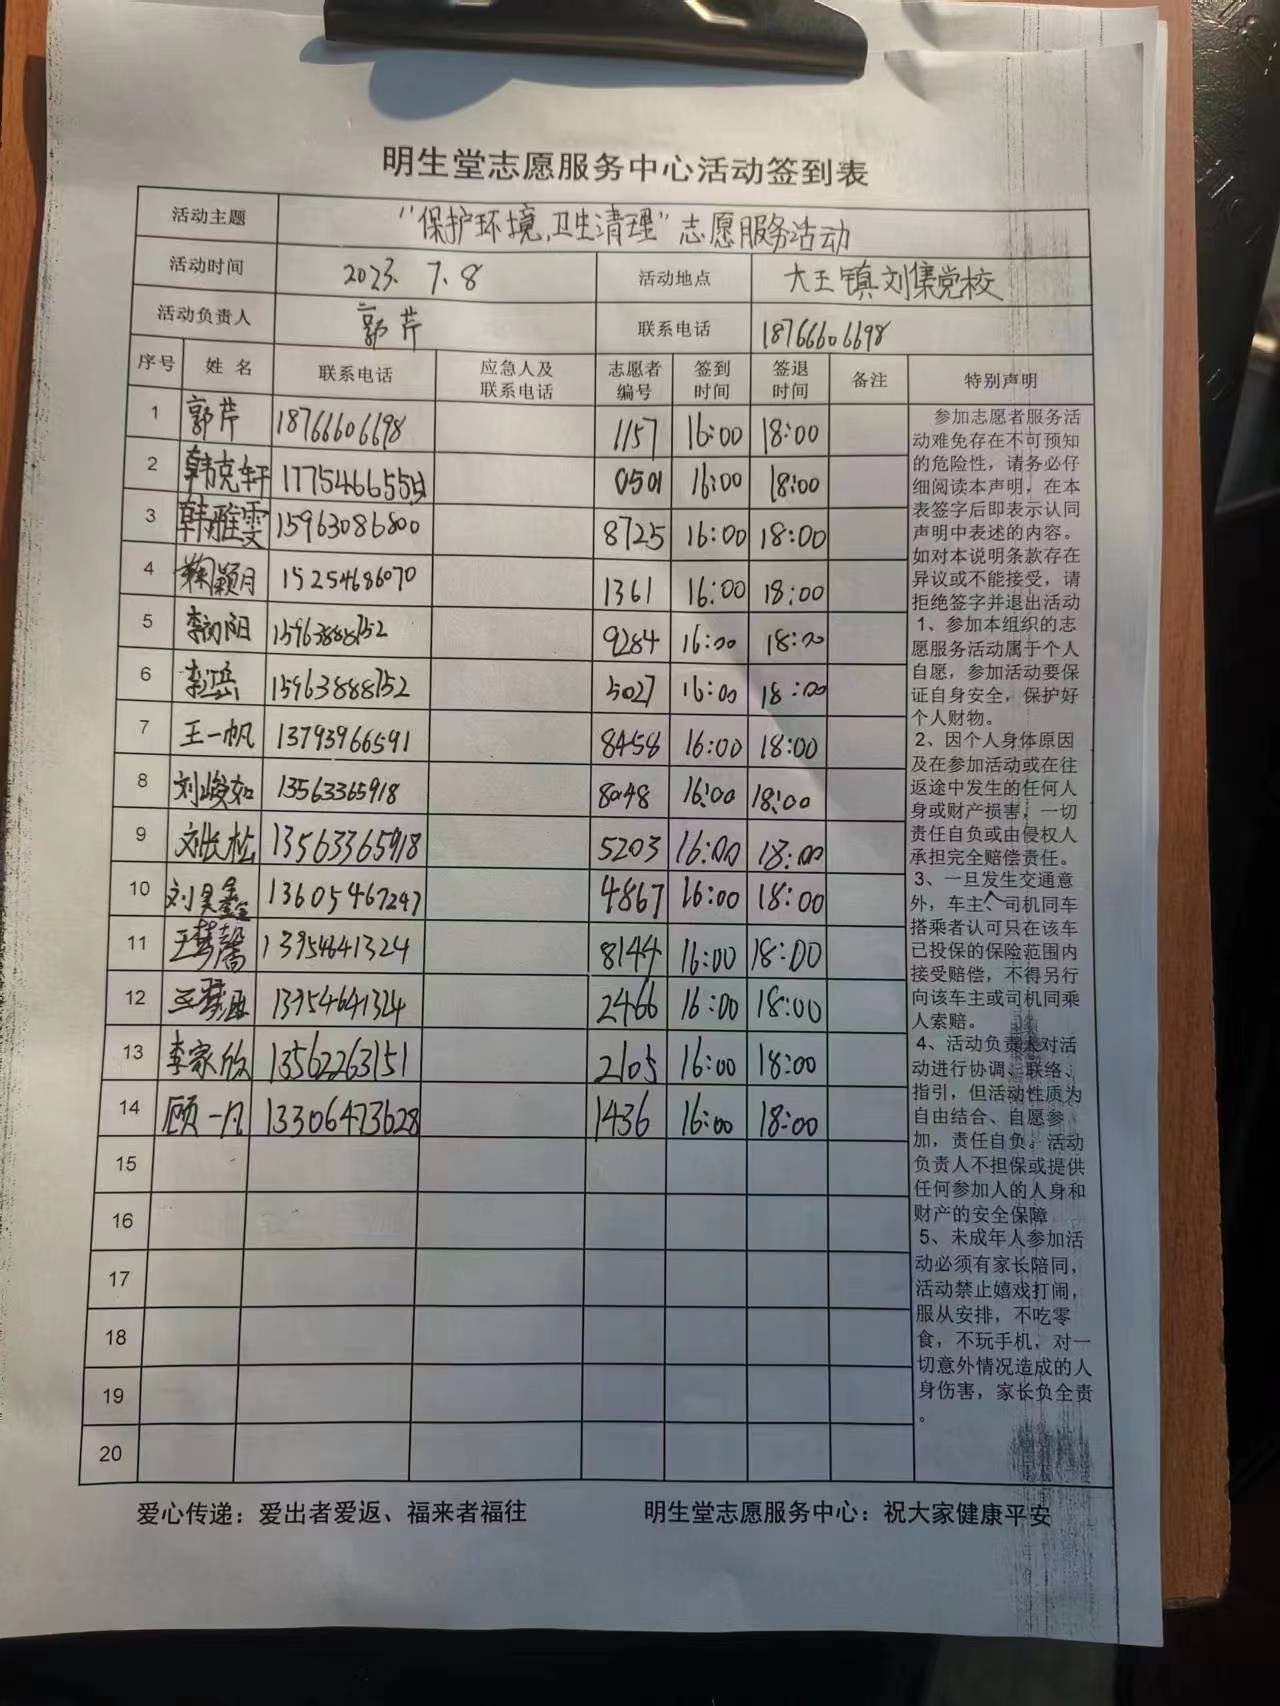 明生堂志愿服务中心活动签到表
活动主题 "保护环境,卫生清理"志愿服务活动
活动时间 2023.7.8 活动地点 大王镇刘集党校
活动负责人 郭芹 联系电话 18766606698
序号 姓名 联系电话 应急人及联系电话 志愿者编号 签到时间 签退时间 备注 特别声明
1 郭芹 18766606698 1157 16:00 18:00
2 韩克轩 0501 16:00 18:00
3 韩雅雯 15963086800 8725 16:00 18:00
4 鞠颖月 15254686070 1361 16:00 18:00
5 李向阳 15963888752 9284 16:00 18:00
6 15963888752 5027 16:00 18:00
7 王一帆 13793966591 8458 16:00 18:00
8 刘峻如 13563365918 8048 16:00 18:00
9 刘长松 13563365918 5203 16:00 18:00
10 刘昊鑫 13605467247 4867 16:00 18:00
11 王梦馨 13954641324 8144 16:00 18:00
12 13954641324 2466 16:00 18:00
13 李家欣 13562263151 2105 16:00 18:00
14 顾一凡 13306473628 1436 16:00 18:00
15
16
17
18
19
20
参加志愿者服务活
动难免存在不可预知
的危险性，请务必仔
细阅读本声明，在本
表签字后即表示认同
声明中表述的内容。
如对本说明条款存在
异议或不能接受，请
拒绝签字并退出活动
1、参加本组织的志
愿服务活动属于个人
自愿，参加活动要保
证自身安全，保护好
个人财物。
2、因个人身体原因
及在参加活动或在往
返途中发生的任何人
身或财产损害，一切
责任自负或由侵权人
承担完全赔偿责任。
3、一旦发生交通意
外，车主、司机同车
搭乘者认可只在该车
已投保的保险范围内
接受赔偿，不得另行
向该车主或司机同乘
人索赔。
4、活动负责人对活
动进行协调、联络、
指引，但活动性质为
自由结合、自愿参
加，责任自负。活动
负责人不担保或提供
任何参加人的人身和
财产的安全保障
5、未成年人参加活
动必须有家长陪同，
活动禁止嬉戏打闹，
服从安排，不吃零
食，不玩手机，对一
切意外情况造成的人
身伤害，家长负全责
。
爱心传递：爱出者爱返、福来者福往 明生堂志愿服务中心：祝大家健康平安